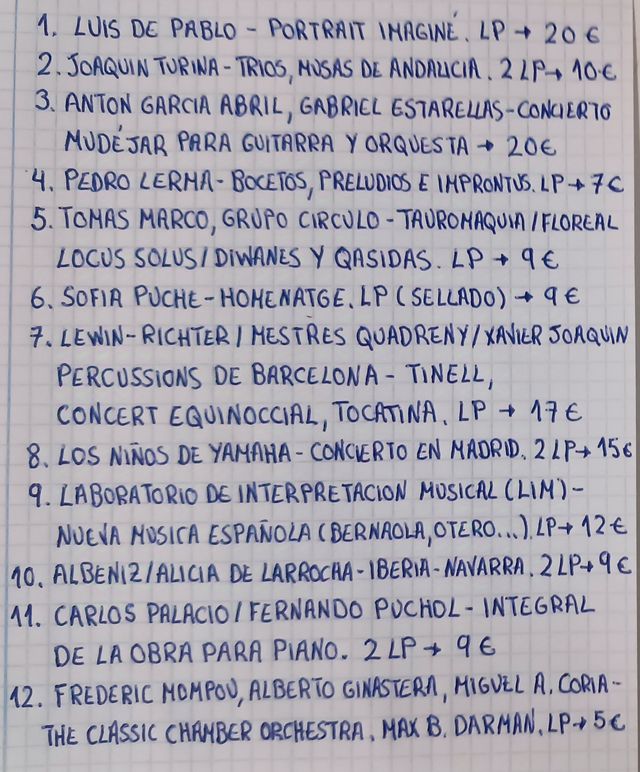 1. LUIS DE PABLO - PORTRAIT IMAGINÉ. LP → 20 €
2. JOAQUIN TURINA - TRIOS, MUSAS DE ANDALUCIA. 2 LP → 10 €
3. ANTON GARCIA ABRIL, GABRIEL ESTARELLAS - CONCIERTO
MUDÉJAR PARA GUITARRA Y ORQUESTA → 20€
4. PEDRO LERMA - BOCETOS, PRELUDIOS E IMPRONTUS. LP → 7€
5. TOMAS MARCO, GRUPO CIRCULO - TAUROMAQUIA / FLOREAL
LOCUS SOLUS / DIWANES Y QASIDAS. LP → 9 €
6. SOFIA PUCHE - HOMENATGE. LP (SELLADO) → 9 €
7. LEWIN-RICHTER / MESTRES QUADRENY / XAVIER JOAQUIN
PERCUSSIONS DE BARCELONA - TINELL,
CONCERT EQUINOCCIAL, TOCATINA. LP → 17 €
8. LOS NIÑOS DE YAMAHA - CONCIERTO EN MADRID. 2 LP → 15€
9. LABORATORIO DE INTERPRETACION MUSICAL (LIM) -
NUEVA MUSICA ESPAÑOLA (BERNAOLA, OTERO...). LP → 12 €
10. ALBENIZ / ALICIA DE LARROCHA - IBERIA - NAVARRA. 2 LP → 9 €
11. CARLOS PALACIO / FERNANDO PUCHOL - INTEGRAL
DE LA OBRA PARA PIANO. 2 LP → 9 €
12. FREDERIC MOMPOU, ALBERTO GINASTERA, MIGUEL A. CORIA -
THE CLASSIC CHAMBER ORCHESTRA. MAX B. DARMAN. LP → 5€